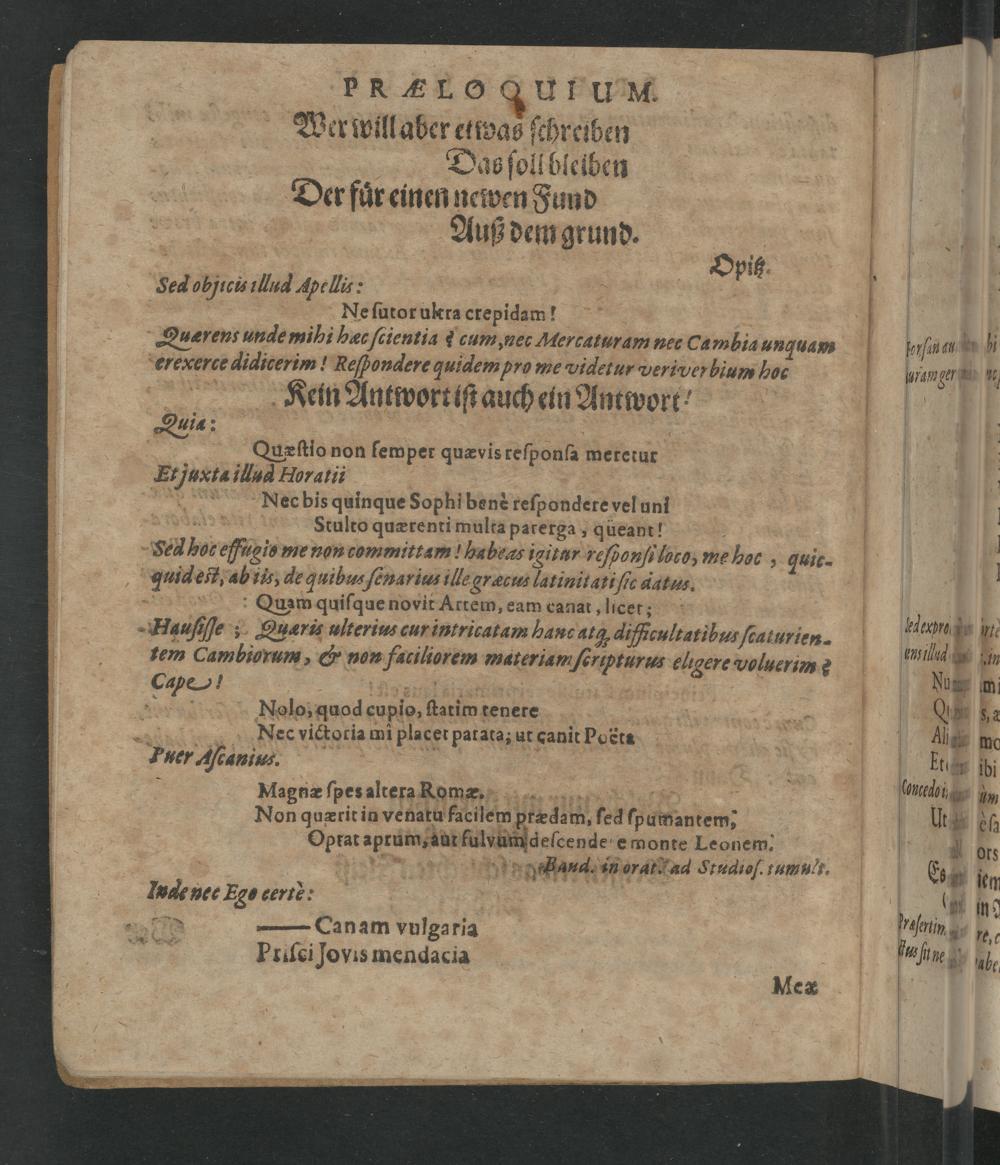 PRÆLOQUIUM.
Wer will aber etwas schreiben
Das soll bleiben
Der für einen newen Fund
Auß dem grund.
Opitz.
Sed objicis illud Apellis:
Ne ſutor ultra crepidam!
Quærens unde mihi hæc ſcientia? cum, nec Mercaturam nec Cambia unquam
erexerce didicerim! Reſpondere quidem pro me videtur veriverbium hoc
Kein Antwort iſt auch ein Antwort!
Quia:
Quæſtio non ſemper quævis reſponſa meretur
Et juxta illud Horatii
Nec bis quinque Sophi benè reſpondere vel uni
Stulto quærenti multa parerga, queant!
Sed hoc effugio me non committam! habeas igitur reſponſi loco, me hoc, quic-
quid eſt, ab iis, de quibus ſenarius ille græcus latinitati ſic datus.
: Quam quiſque novit Artem, eam canat, licet;
Hauſiſſe; Quæris ulterius cur intricatam hanc atq́; difficultatibus ſcaturien-
tem Cambiorum, & non faciliorem materiam ſcripturus eligere voluerim?
Cape!
Nolo, quod cupio, ſtatim tenere
Nec victoria mî placet parata; ut canit Poëta
Puer Aſcanius.
Magnæ ſpes altera Romæ.
Non quærit in venatu facilem prædam, ſed ſpumantem;
Optat aprum, aut fulvum deſcendere monte Leonem.
Baud. in orat. ad Studioſ. tumult.
Inde nec Ego certè:
—— Canam vulgaria
Priſci Jovis mendacia
Meæ